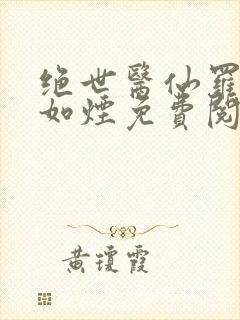 绝世醫仙羅
如煙免費閱
黃瓊霞